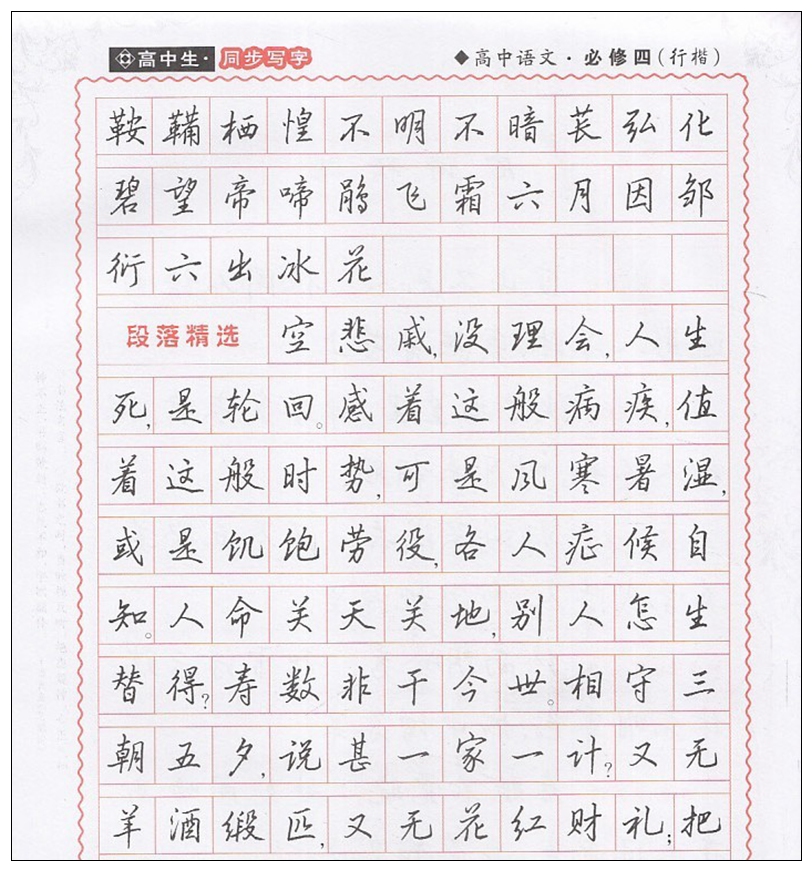 高中生·同步写字
◆高中语文·必修四(行楷)
鞍鞴栖惶不明不暗苌弘化
碧望帝啼鹃飞霜六月因邹
衍六出冰花
段落精选 空悲戚,没理会,人生
死,是轮回。感着这般病疾,值
着这般时势,可是风寒暑湿,
或是饥饱劳役,各人症候自
知。人命关天关地,别人怎生
替得?寿数非干今世。相守三
朝五夕,说甚一家一计?又无
羊酒缎匹,又无花红财礼;把